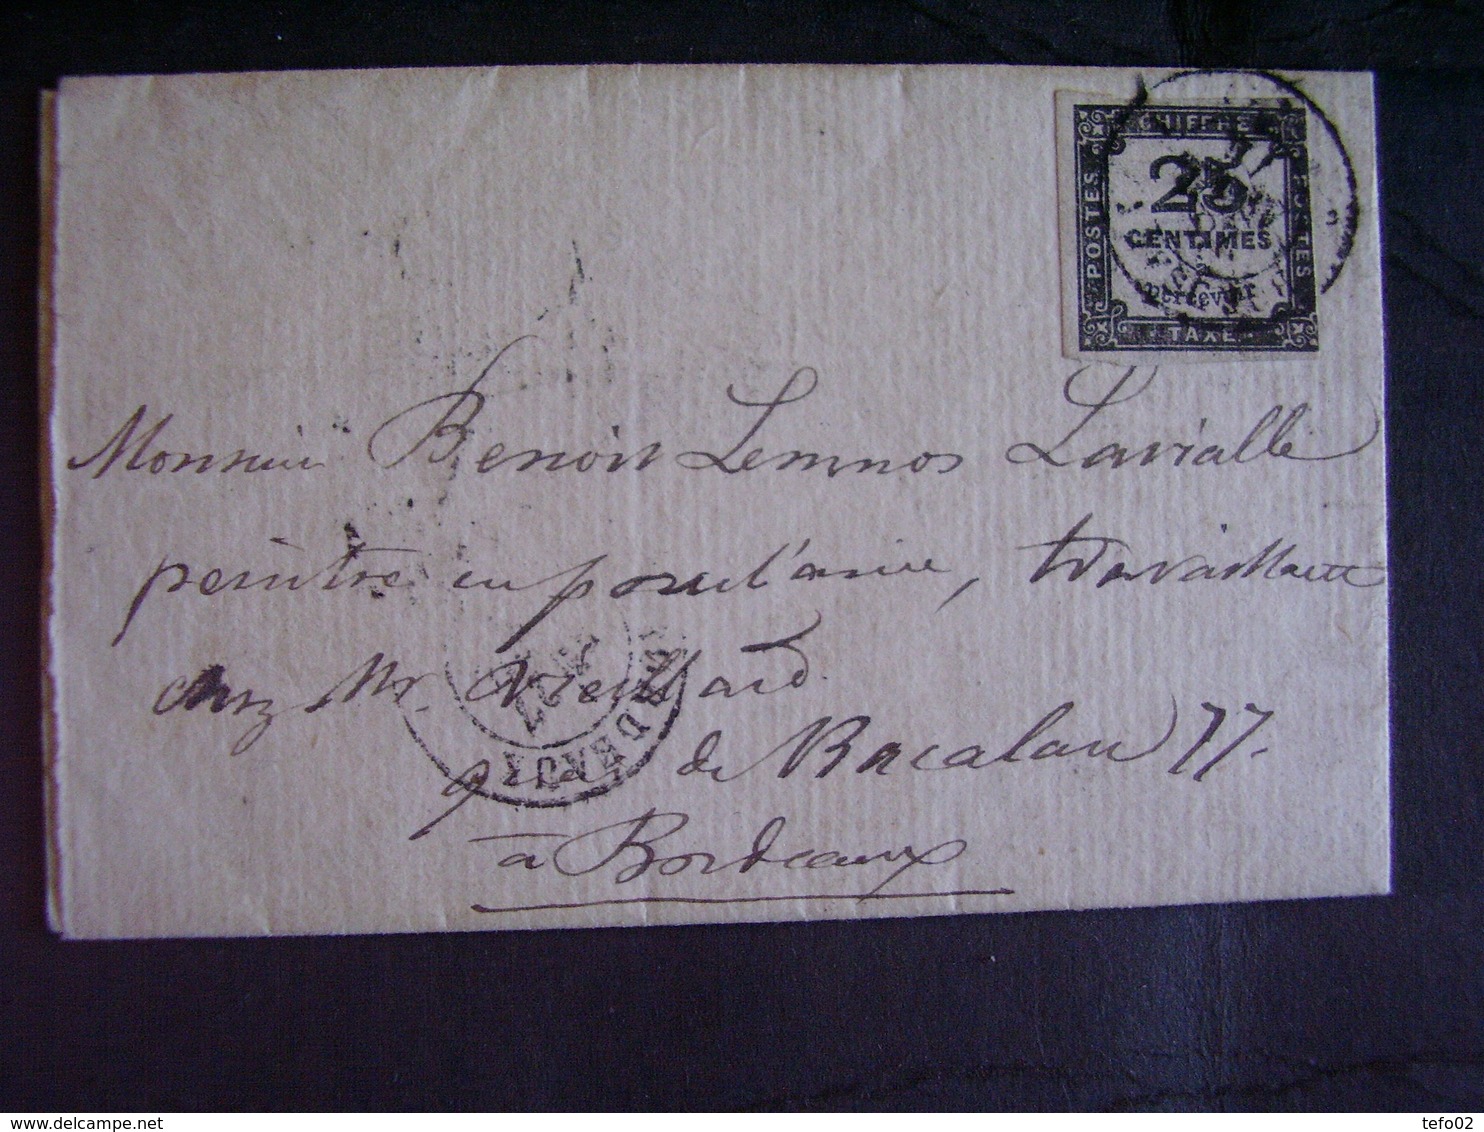 CHIFFRE
25
CENTIMES
à
percevoir
POSTES
POSTES
TAXE
Monsieur Benoit Lemnos Lavialle
peintre en porcelaine, travaillant
chez Mr. Vieillard
quai de Bacalan 77.
à Bordeaux
27
tefo02